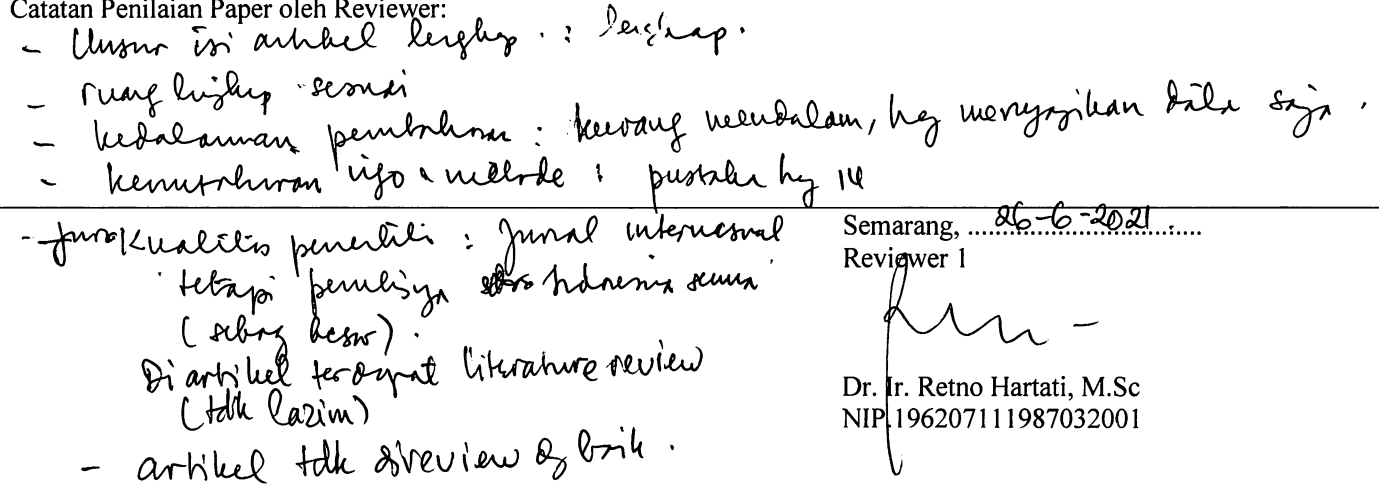 Catatan Penilaian Paper oleh Reviewer:
- Unsur isi artikel lengkap : lengkap.
- ruang lingkup sesuai
- kedalaman pembahasan : kurang mendalam, hy menyajikan data saja.
- kemutahiran info & metode : pustaka hy 14
- Kualitas penerbit : Jurnal internasional
tetapi penulisnya Indonesia semua
(sebag besar).
Di artikel terdapat literature review
(tdk lazim)
- artikel tdk direview dg baik.
Semarang, 26-6-2021
Reviewer 1
Dr. Ir. Retno Hartati, M.Sc
NIP.196207111987032001